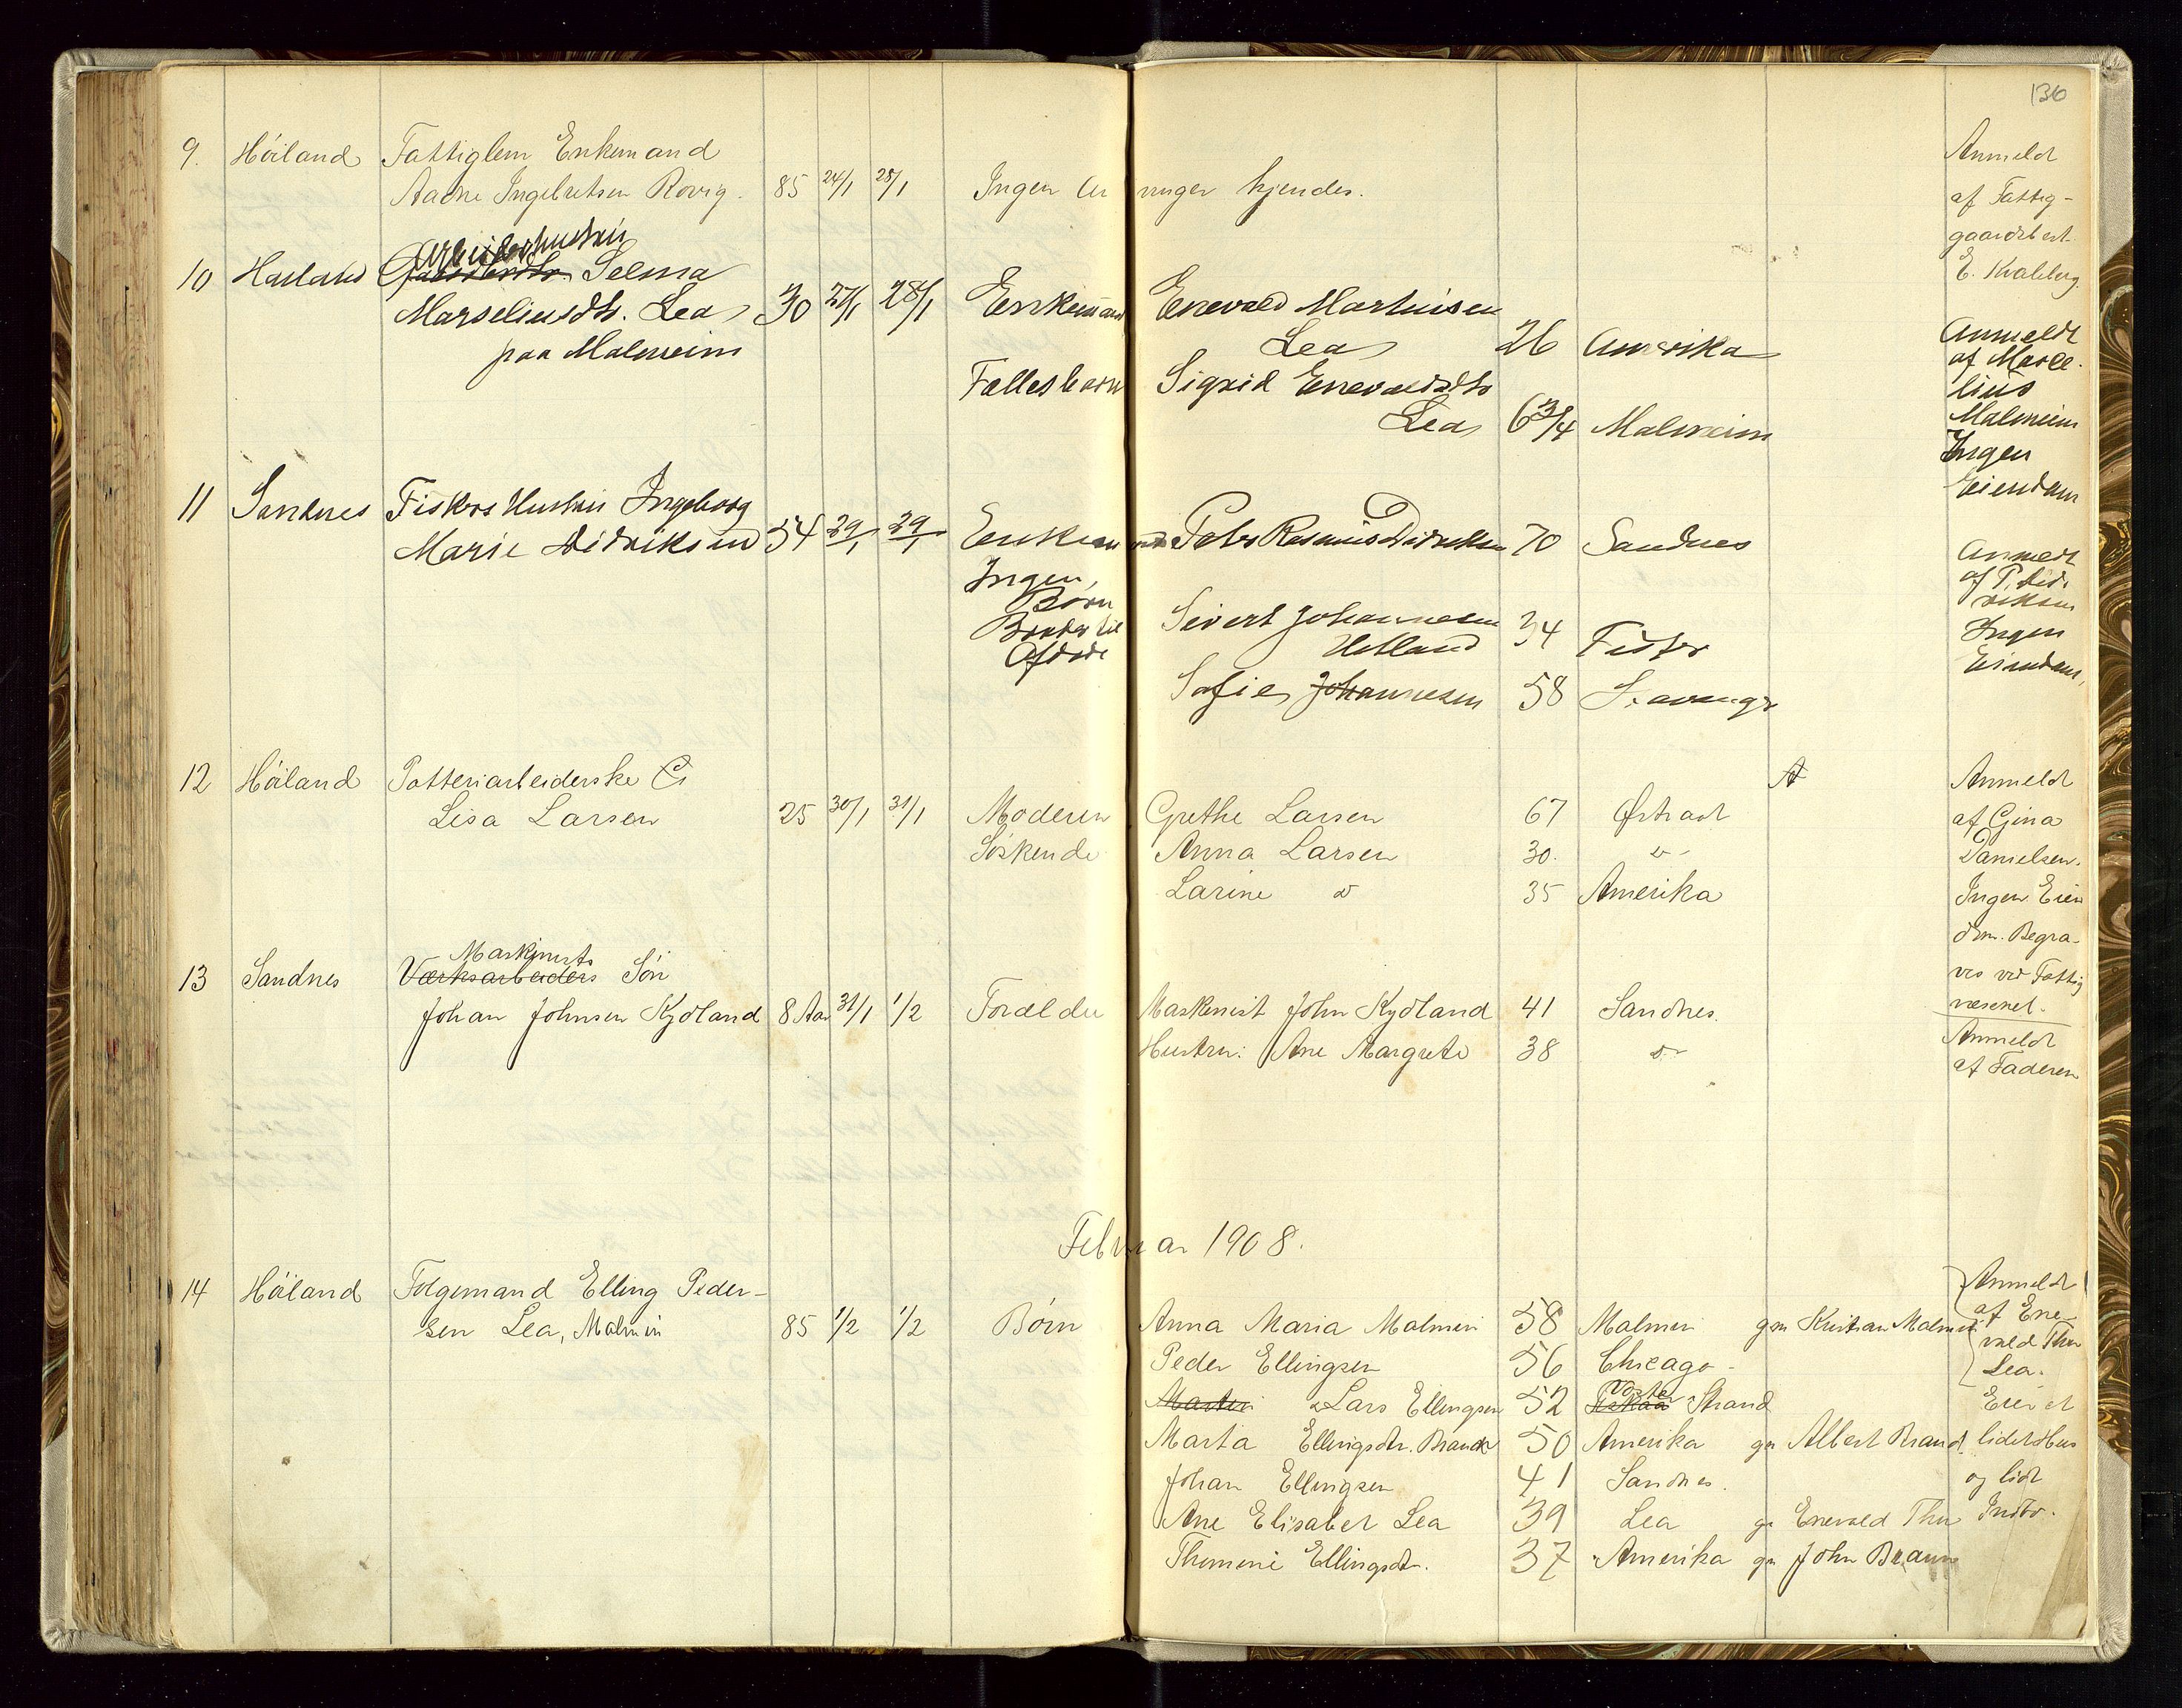 130
9. Höiland Fattiglem Enkemand
Aadne Ingebretsen Rovig. 85 24/1 28/1 Ingen Arvinger kjendes.
Anmeldt
af Fattig-
gaardsbest.
E. Kvaleberg.
Arbeiderhustru
10 Høiland Selma
Marseliusdtr. Lea 30 27/1 28/1 Enkemand Enevald Martinsen
paa Malmeim Lea 26 Amerika
Fællesbarn Sigrid Enevaldsdtr
Lea 6 3/4 Malmeim
Anmeldt
af Marce-
lius
Malmeim
Ingen
Eiendom
11 Sandnes Fiskers Hustru Ingeborg
Marie Didriksen 54 29/1 29/1 Enkemand Peder Rasmus Didriksen 70 Sandnes
Ingen
Børn
Broder til Sivert Johannesen
Afdøde Hetland 34 Fister
Sofie Johannesen 58 Stavanger
Anmeldt
af P. Did-
riksen
Ingen
Eiendom,
12 Höiland Potteriarbeiderske
Lisa Larsen 25 30/1 31/1 Moderen Grethe Larsen 67 Østradt
Söskende Anna Larsen 30. d-
Larine d 35 Amerika
Anmeldt
af Gina
Danielsen.
Ingen Eien
dom. Begra-
ves ved Fattig
væsenet.
Maskinists
13 Sandnes Værksarbeiders Sön
Johan Johnsen Kydland 8 Aar 31/1 1/2 Forældre Maskinist John Kydland 41 Sandnes.
Hustru: Ane Margrete 38 d-
Anmeldt
af Faderen
Februar 1908.
14 Höiland Folgemand Elling Peder-
sen Lea, Malmin 85 1/2 1/2 Börn Anna Maria Malmin 58 Malmin gm Kristian Malmin
Peder Ellingsen 56 Chicago -
Martin Lars Ellingsen 52 Strand
Marta Ellingsdtr. Brandt 50 Amerika gm Albert Brandt
Johan Ellingsen 41 Sandnes.
Ane Elisabet Lea 39 Lea gm Enevald Thu
Thomine Ellingsdtr. 37 Amerika gm John
Anmeldt
af Ene-
vald Thu
Lea.
Eier et
lidet Hus
og lidt
Indbo.